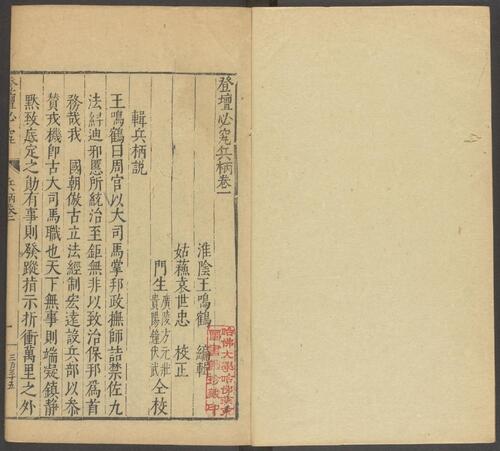 登壇必究兵柄卷一
淮陰王鳴鶴 編輯
姑蘇袁世忠 校正
門生廣陵方元壯
貴陽鐘伏武仝校
輯兵柄說
王鳴鶴曰周官以大司馬掌邦政撫師詰禁佐九
法紏廸邪慝所統治至鉅無非以致治保邦爲首
務哉我 國朝倣古立法經制宏達設兵部以叅
賛戎機卽古大司馬職也天下無事則端凝鎮靜
黙致底定之勛有事則發蹤指示折衝萬里之外
登壇必究
兵柄卷一
一
三百三十五
哈佛大學哈佛燕京
圖書館珍藏印